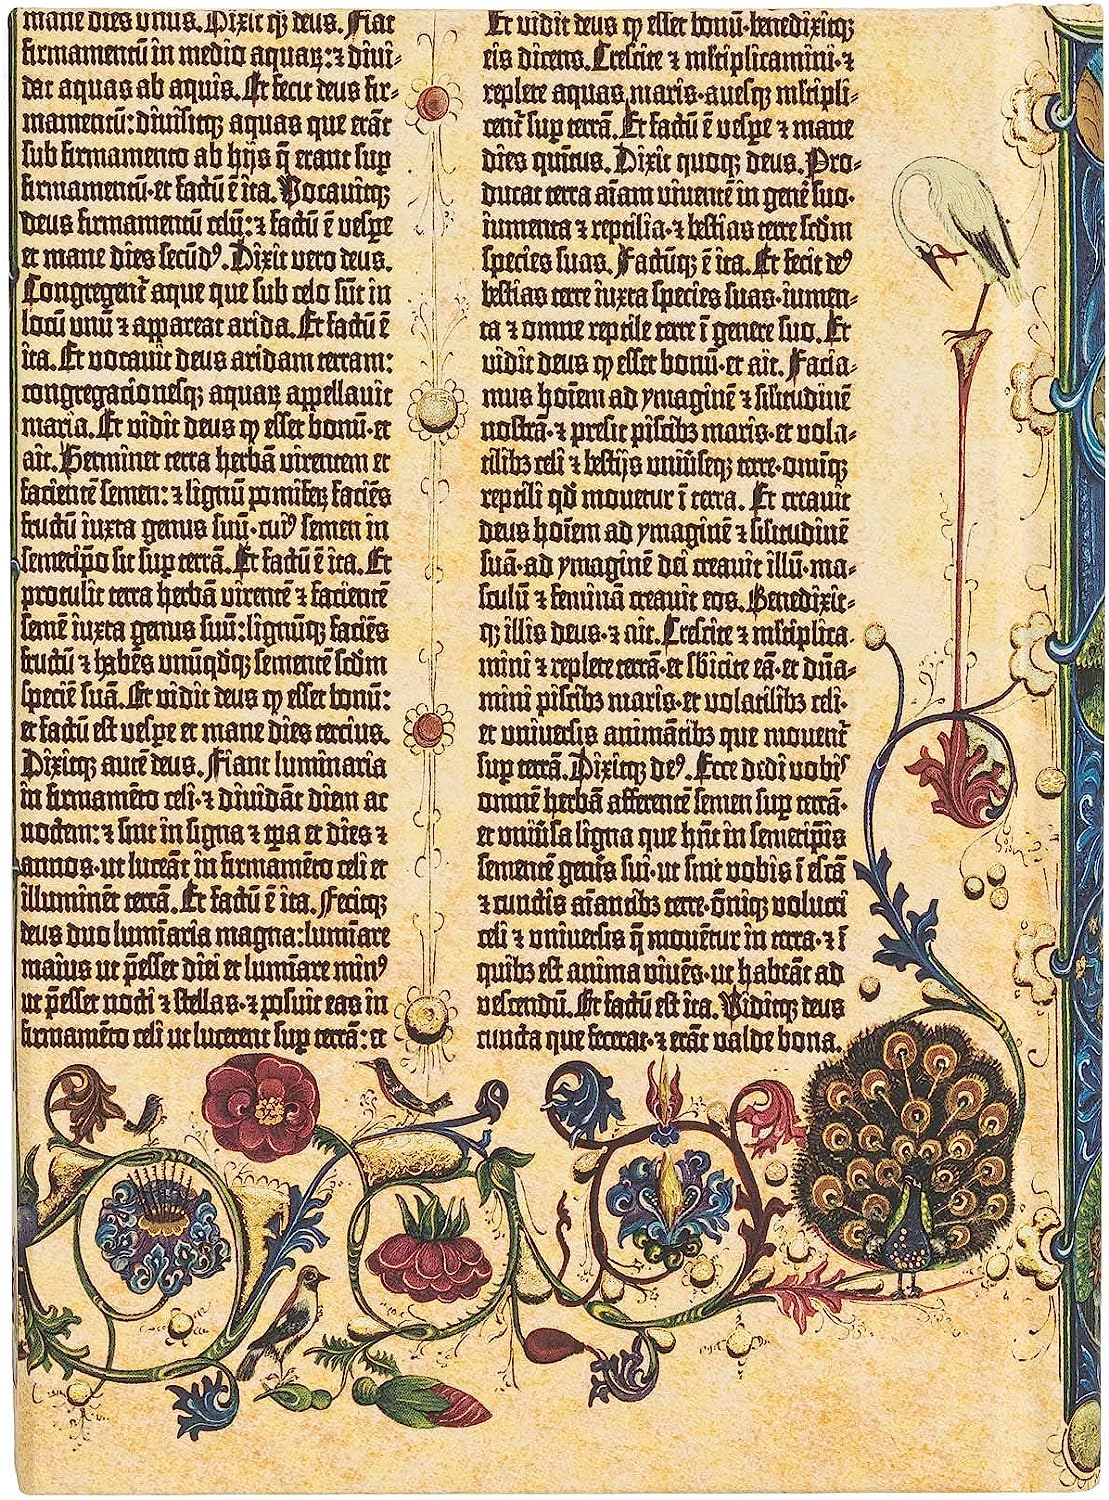 mane dies unus. Dixit q̄ȝ deus. Fiat
firmamentū in medio aquaꝝ: ⁊ divi-
dat aquas ab aquis. Et fecit deus fir-
mamentū: divisitqȝ aquas que erāt
sub firmamento ab hijs q̄ erant sup
firmamentū. et factū ē ita. Vocavitqȝ
deus firmamentū celū: ⁊ factū ē vesꝑe
et mane dies secūdꝰ. Dixit vero deus.
Congregent᷑ aque que sub celo sūt in
locū unū ⁊ appareat arida. Et factū ē
ita. Et vocavit deus aridam terram:
congregacionesqȝ aquaꝝ appellavit
maria. Et vidit deus ꝙ esset bonū. et
ait. Germinet terra herbā virentem et
facientē semen: ⁊ lignū pomifeꝝ faciēs
fructū iuxta genus suū. cuiꝰ semen in
semetip̄o sit sup terrā. Et factū ē ita. Et
protulit terra herbā virentē ⁊ facientē
semē iuxta genus suū: lignūqȝ faciēs
fructū ⁊ habēs unūqdqȝ sementē scdm
speciē suā. Et vidit deus ꝙ esset bonū:
et factū est vesꝑe et mane dies tercius.
Dixitqȝ autē deus. Fiant luminaria
in firmamēto celi. ⁊ dividāt diem ac
noctem: ⁊ sint in signa ⁊ tꝑa et dies ⁊
annos. ut luceāt in firmamēto celi et
illuminēt terrā. Et factū ē ita. Fecitqȝ
deus duo lumīaria magna: lumīare
maius ut p̄esset diei et lumīare minꝰ
ut p̄esset nocti ⁊ stellas. ⁊ posuit eas in
firmamēto celi ut lucerent sup terrā: et
Et vidit deus ꝙ esset bonū. benedixitqȝ
eis dicens. Crescite ⁊ ml̄tiplicamini. ⁊
replete aquas maris. avesqȝ ml̄tipli-
cent᷑ sup terrā. Et factū ē vesꝑe ⁊ mane
dies quītus. Dixit quoqȝ deus. Pro-
ducat terra aīam viventē in genē suo.
iumenta ⁊ reptilia. ⁊ bestias terre scdm
species suas. Factūqȝ ē ita. Et fecit deꝰ
bestias terre iuxta species suas. iumen-
ta ⁊ omne reptile terre ī genere suo. Et
vidit deus ꝙ esset bonū. et ait. Facia-
mus hoīem ad ymaginē ⁊ sil̄itudinē
nostrā. ⁊ presit piscibȝ maris. et vola-
tilibȝ celi ⁊ bestijs univ̄seqȝ terre. omīqȝ
reptili qd̄ movetur ī terra. Et creavit
deus hoīem ad ymaginē ⁊ sil̄itudinē
suā. ad ymaginē dei creavit illū. ma-
sculū ⁊ feminā creavit eos. Benedixit-
qȝ illis deus. ⁊ ait. Crescite ⁊ ml̄tiplica-
mini ⁊ replete terrā. et sb̄icite eā. et dn̄a-
mini piscibȝ maris. et volatilibȝ celi.
et universis animātibȝ que movent᷑
sup terrā. Dixitqȝ deꝰ. Ecce dedi vobis
omnē herbā afferentē semen sup terrā.
et univ̄sa ligna que hn̄t in semetip̄is
sementē gen̄is sui. ut sint vobis ī escā
⁊ cunctis aīantibȝ terre. ōniqȝ volucri
celi ⁊ universis q̄ movētur in terra. ⁊ ī
quibȝ est anima vivēs. ut habeāt ad
vescendū. Et factū est ita. Viditqȝ deus
cuncta que fecerat. ⁊ erāt valde bona.